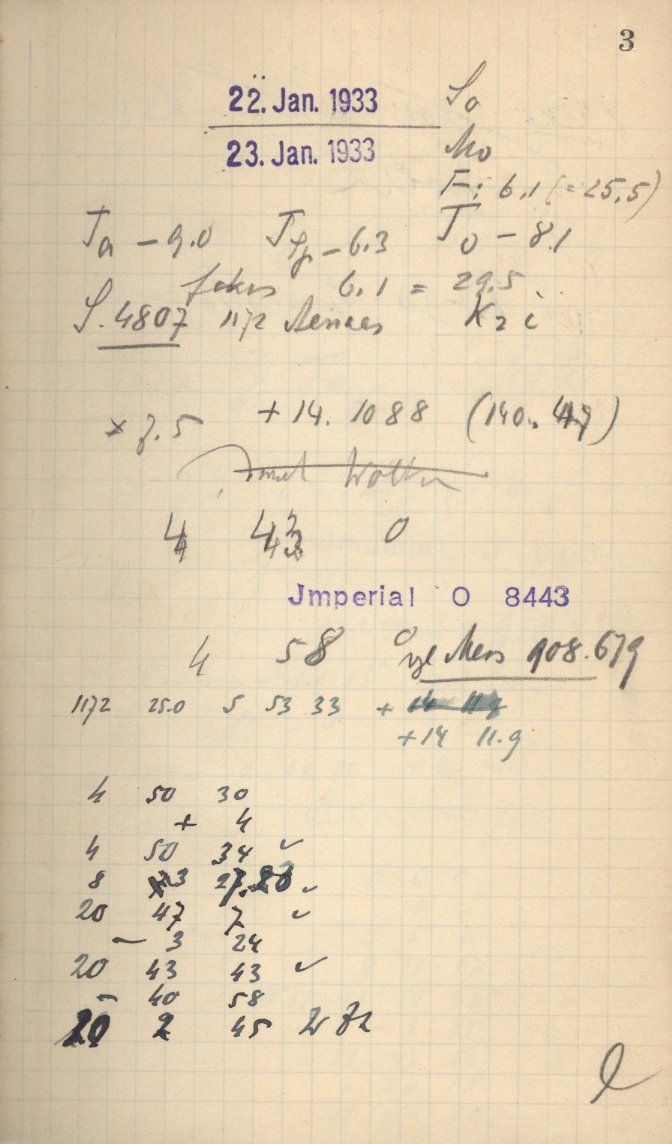 3
22. Jan. 1933 So
23. Jan. 1933 Mo
F: 6.1 (=25,5)
Ta - 9.0 - 6.3 To - 8.1
fokus 6.1 = 29.5
S. 4807 1172 Aeneas
x 7.5 + 14. 1088 (140.
4 0
Jmperial O 8443
4 58 0 vgl Mers 908.679
1172 25.0 5 53 33 +
+14 11.9
4 50 30
+ 4
4 50 34 ✓
8 27. ✓
20 47 7 ✓
- 3 24
20 43 43 ✓
- 40 58
20 2 45